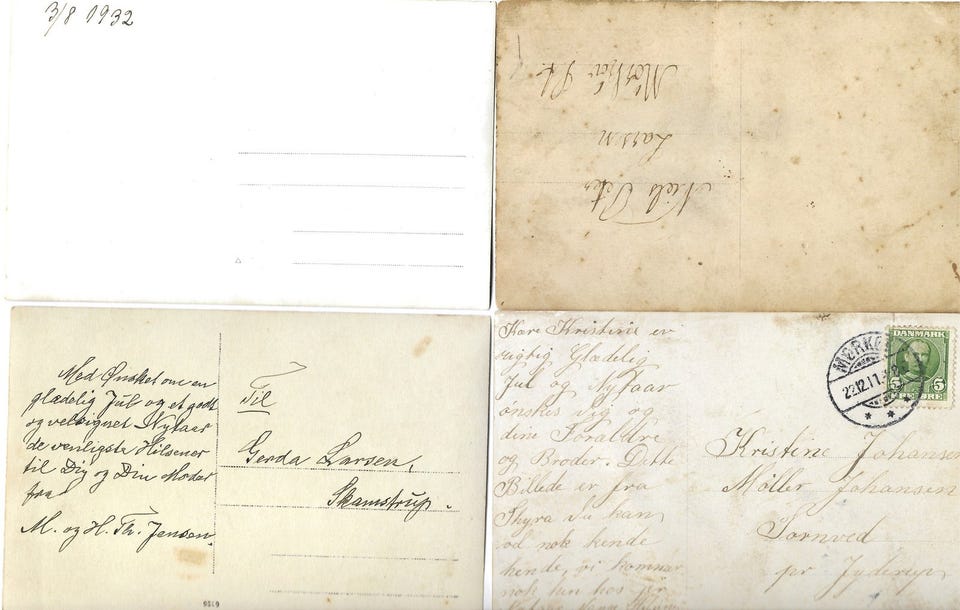 3/8 1932
Niels Peter
Larsen
Mørkøv St.
Med Ønsket om en
glædelig Jul og et godt
og velsignet Nytaar
de venligste Hilsener
til Dig og Din Moder
fra
M. og H. Th. Jensen.
Til
Gerda Larsen,
Skamstrup.
Kære Kristine en
rigtig Glædelig
Jul og Nytaar
ønskes dig og
dine Forældre
og Broder. Dette
Billede er fra
Thyra du kan
nok kende
hende, vi kommer
nok hen
DANMARK
5 5
ØRE
22.12.11
Kristine Johansen
Møller Johansen
Tornved
pr Jyderup